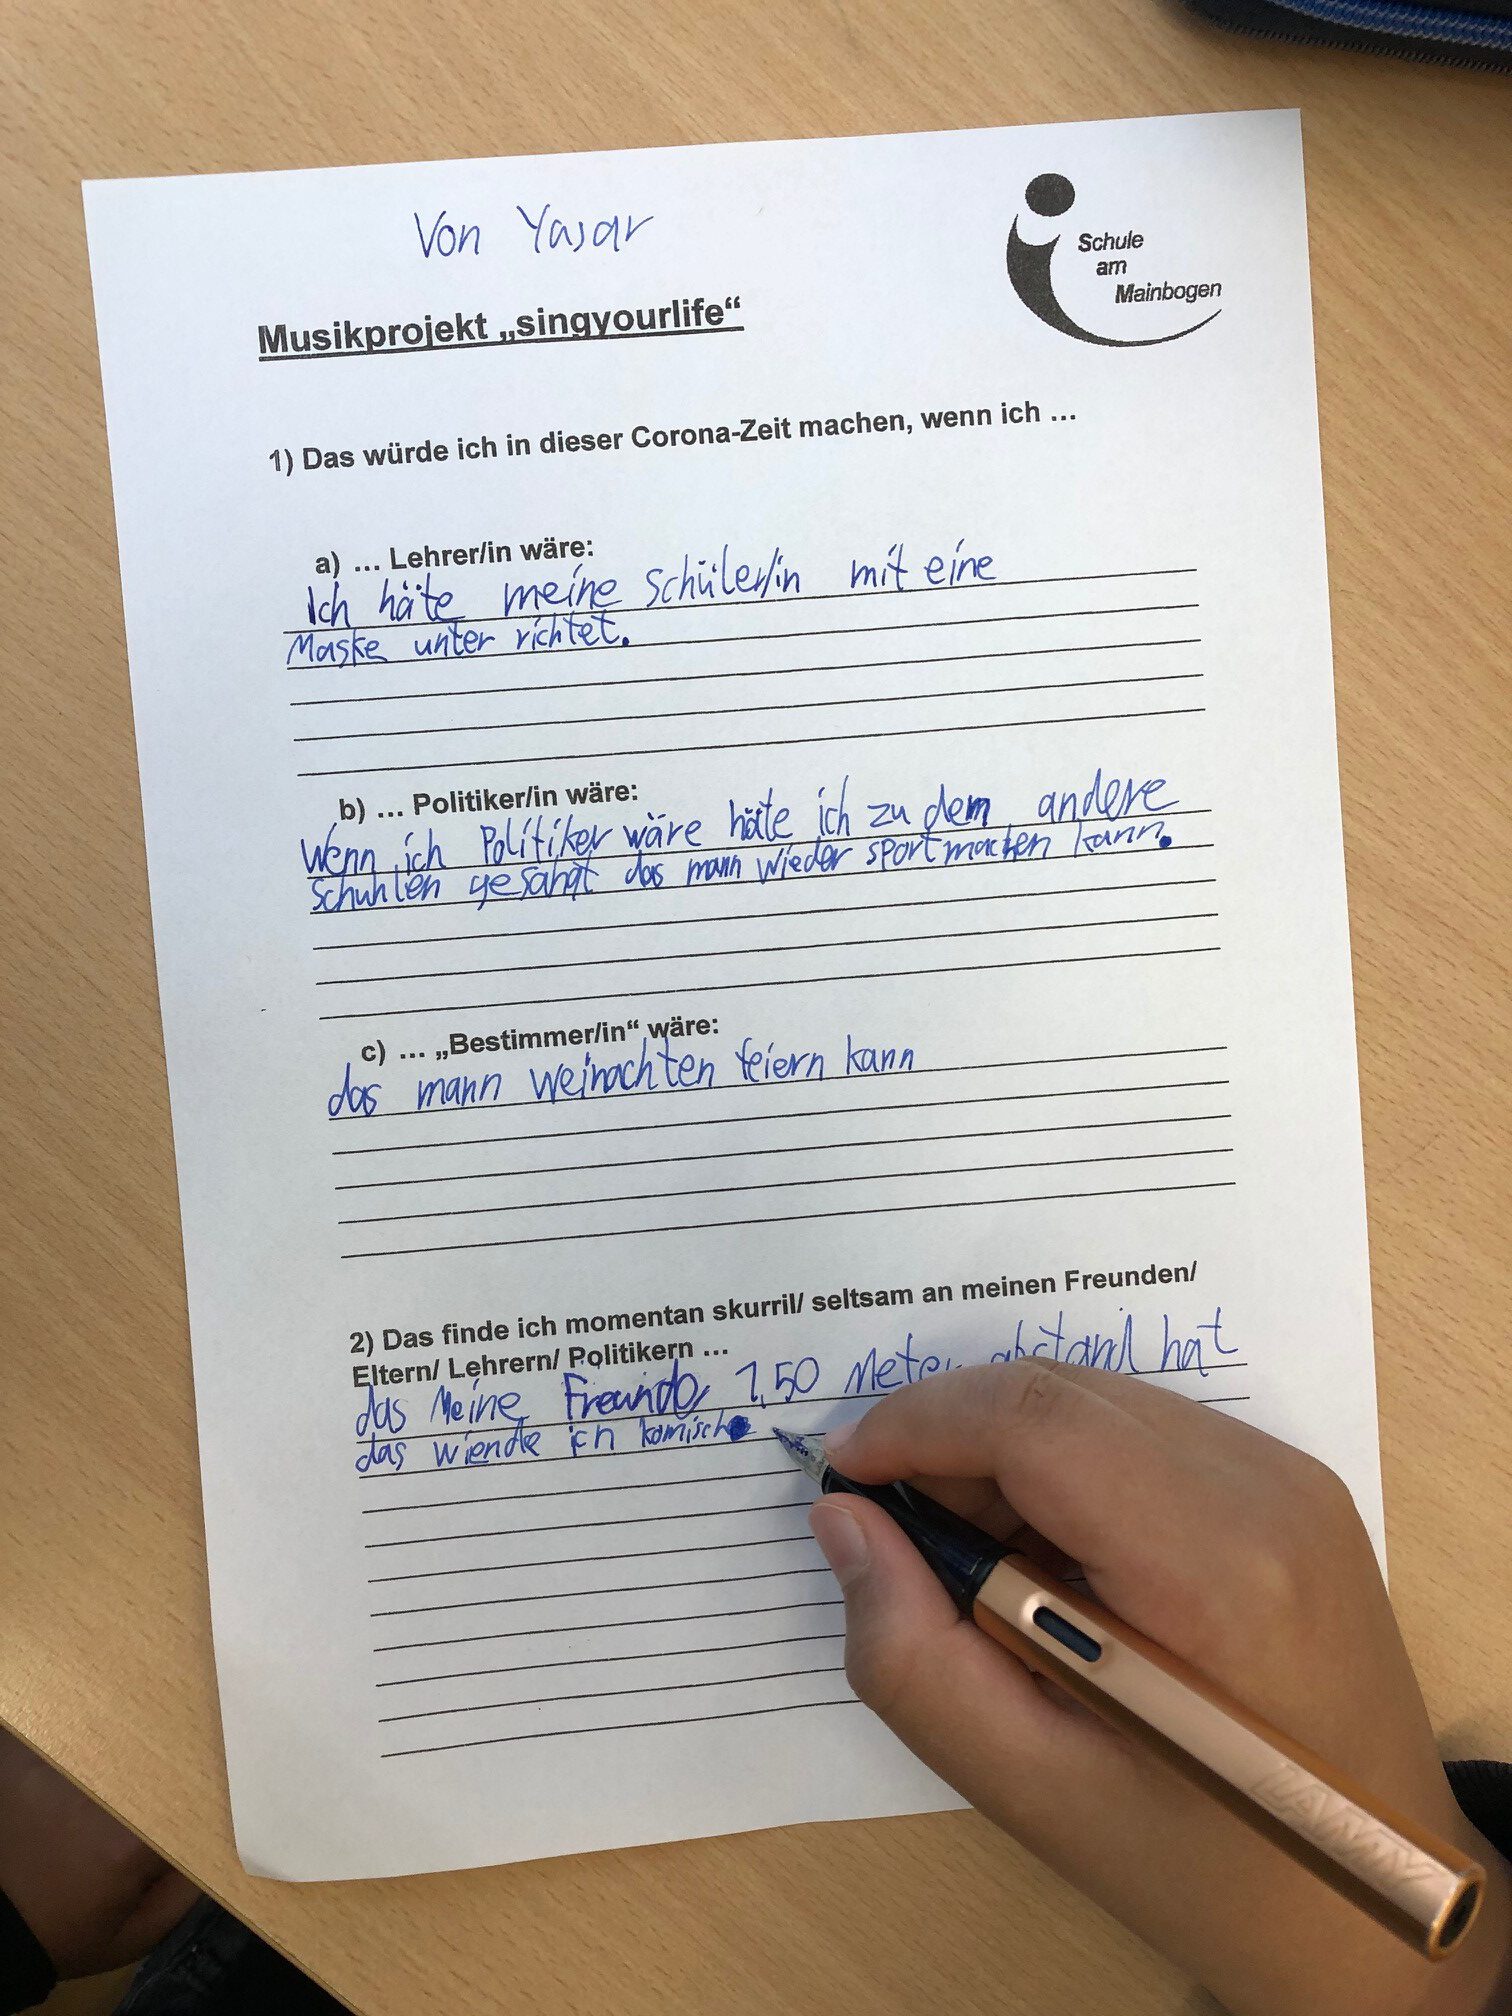 Von Yasar
Schule
am
Mainbogen
Musikprojekt „singyourlife“
1) Das würde ich in dieser Corona-Zeit machen, wenn ich …
a) … Lehrer/in wäre:
Ich häte meine schüler/in mit eine
Maske unter richtet.
b) … Politiker/in wäre:
Wenn ich Politiker wäre häte ich zu dem andere
schuhlen gesahgt das mann wieder sportmachen kann.
c) … „Bestimmer/in“ wäre:
das mann weinachten feiern kann
2) Das finde ich momentan skurril/ seltsam an meinen Freunden/
Eltern/ Lehrern/ Politikern …
das Meine Freunde 1,50 Meter abstand hat
das wiende ich komisch
LAMY